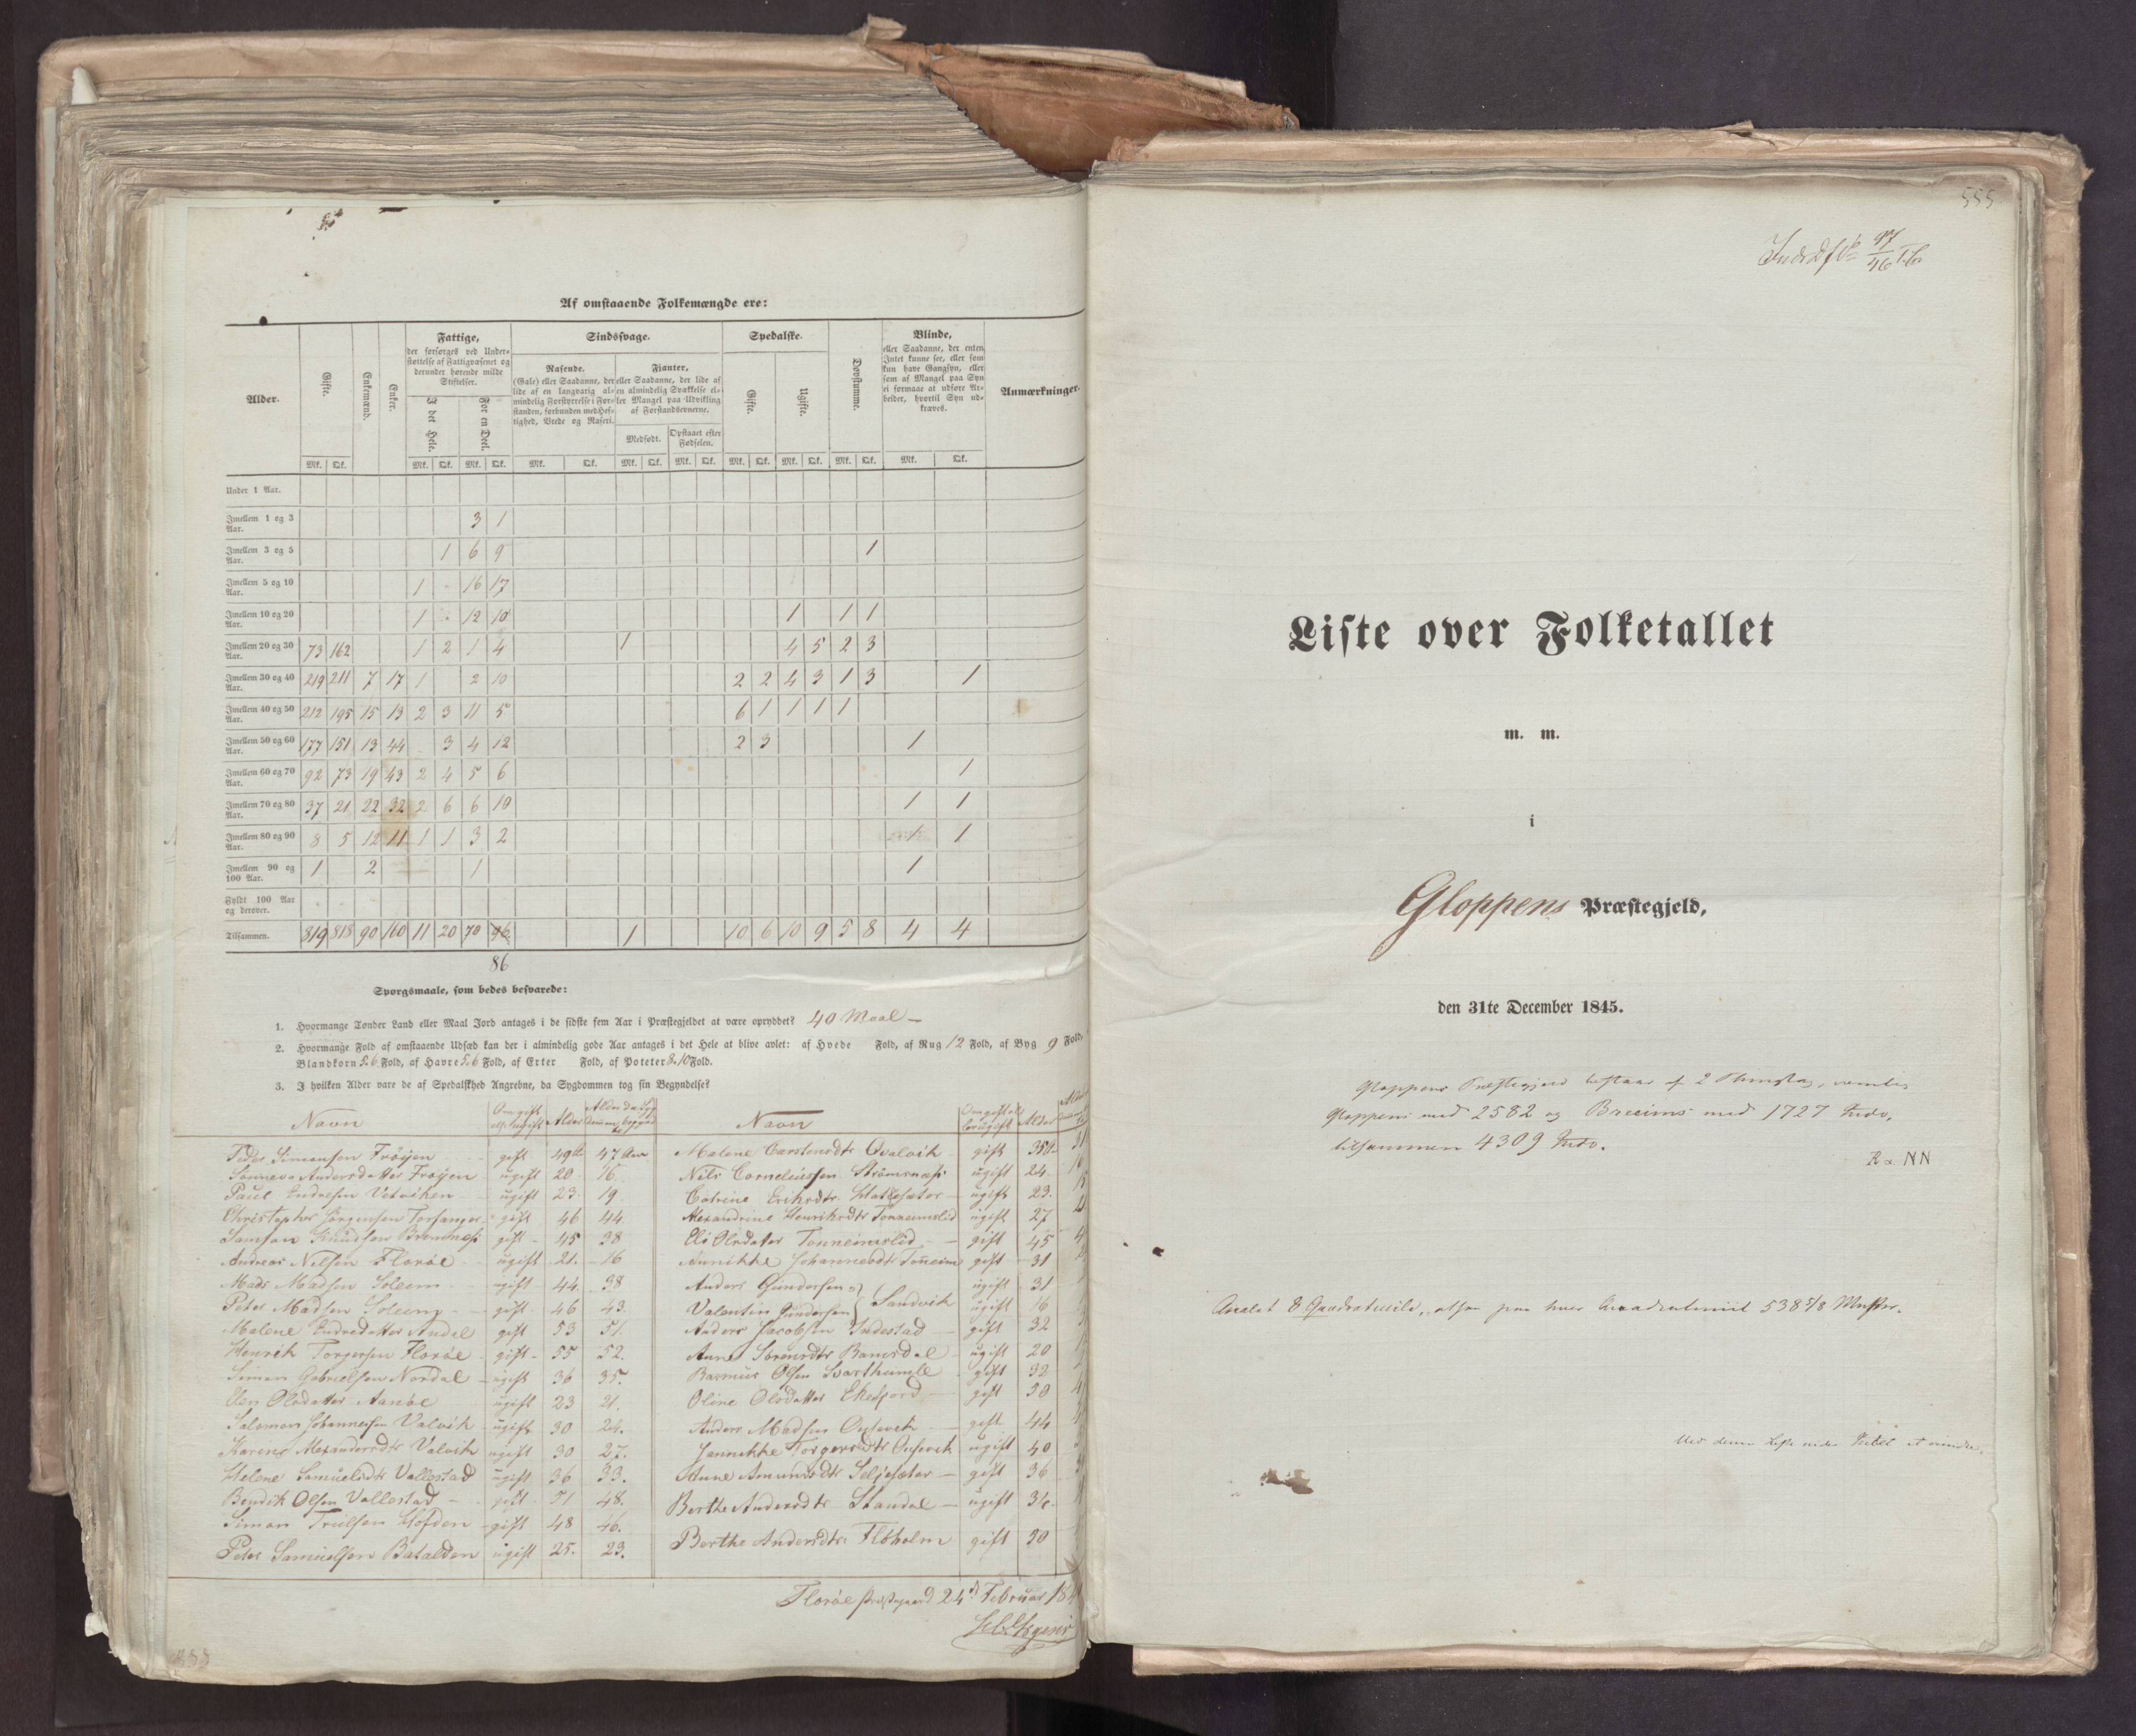 Af omstaaende Folkemængde ere:
Alder. Gifte. Enkemænd. Enker. Fattige, Sindssvage. Spedalske. Døvstumme. Blinde, Anmærkninger.
der forsørges ved Under-
støttelse af Fattigvæsenet og
derunder hørende milde
Stiftelser.
I det Hele. For en Deel.
Rasende.
(Gale) eller Saadanne, der
lide af en langvarig al-
mindelig Forstyrrelse i For-
standen, forbunden med Hef-
tighed, Vrede og Raseri.
Fianter,
eller Saadanne, der lide af
en almindelig Svækkelse el-
ler Mangel paa Udvikling
af Forstandsevnerne.
Medfødt. Opstaaet efter Fødselen.
Gifte. Ugifte.
eller Saadanne, der enten
Intet kunne see, eller som
kun have Gangsyn, eller
som af Mangel paa Syn
ei formaae at udføre Ar-
beider, hvortil Syn ud-
kræves.
Mk. Qk. Mk. Qk. Mk. Qk. Mk. Qk. Mk. Qk. Mk. Qk. Mk. Qk. Mk. Qk. Mk. Qk. Mk. Qk.
Under 1 Aar.
Imellem 1 og 3 Aar. 3 1
Imellem 3 og 5 Aar. 1 6 9 1
Imellem 5 og 10 Aar. 1 - 16 17
Imellem 10 og 20 Aar. 1 - 12 10 1 1 1
Imellem 20 og 30 Aar. 73 162 1 2 1 4 1 4 5 2 3
Imellem 30 og 40 Aar. 219 211 7 17 1 2 10 2 2 4 3 1 3 1
Imellem 40 og 50 Aar. 212 195 15 13 2 3 11 5 6 1 1 1 1
Imellem 50 og 60 Aar. 177 151 13 44 3 4 12 2 3 1
Imellem 60 og 70 Aar. 92 73 19 43 2 4 5 6 1
Imellem 70 og 80 Aar. 37 21 22 32 2 6 6 10 1 1
Imellem 80 og 90 Aar. 8 5 12 11 1 1 3 2 1 1
Imellem 90 og 100 Aar. 1 2 1 1
Fyldt 100 Aar og derover.
Tilsammen. 819 818 90 160 11 20 70 96 1 10 6 10 9 5 8 4 4
86
Spørgsmaale, som bedes besvarede:
1. Hvormange Tønder Land eller Maal Jord antages i de sidste fem Aar i Præstegjeldet at være opryddet? 40 Maal –
2. Hvormange Fold af omstaaende Udsæd kan der i almindelig gode Aar antages i det Hele at blive avlet: af Hvede Fold, af Rug 12 Fold, af Byg 9 Fold,
Blandkorn 5-6 Fold, af Havre 5-6 Fold, af Erter Fold, af Poteter 8-10 Fold.
3. I hvilken Alder vare de af Spedalskhed Angrebne, da Sygdommen tog sin Begyndelse?
Navn Om gift ell. ugift Alder Navn Alder
Peder Simonsen Frøyen gift 49 47 Aar
Andersdatter Frøyen ugift 20 16.
Paul Vetviken ugift 23 19.
Christopher Jørgensen gift 46 44
Samson Knudsen gift 45 38
Andreas Nilsen Florøe ugift 21. 16
Mads Madsen Soleem ugift 44. 38
Peter Madsen Soleem gift 46 43.
Malene gift 53 51.
Henrik Torgersen Florøe gift 55 52.
Simon Gabrielsen Nordal ugift 36 35.
Olsdatter Aanøe ugift 23 21.
Salomon Johannessen Valvik ugift 30 24.
Karine Alexandersdtr Valvik ugift 30 27.
Helene Samuelsdtr Vallestad ugift 36 33.
Bendik Olsen Vallestad gift 51 48.
Simon Høfden gift 48 46.
Peter Samuelsen Batalden ugift 25. 23.
Malene Carstensdtr gift
Nils Corneliussen Strømsnæs ugift 24.
Eriksdtr ugift 23.
Alexandrine Henriksdtr ugift 27
Eli Olsdatter gift 45
Annikke Johannesdtr gift 31
Anders Gundersen ugift 31
Valentin Gundersen Sandvik ugift 16
Anders Jacobsen Indestad gift 32
Anne ugift 20
Rasmus Olsen Svarthumle gift 32
Oline Olsdatter gift 50
Anders Madsen gift 44
Jannikke Torgersdtr ugift 40
Anne Amundsdtr Seljesæter gift 36
Berthe Andersdtr Standal ugift
Berthe Andersdtr gift 30
Florøe Præstegaard 24 Februar
555
47
46
Liste over Folketallet
m. m.
i
Gloppens Præstegjeld,
den 31te December 1845.
Gloppens Præstegjeld bestaar af 2 Thinglag, nemlig
Gloppens med 2582 og Breeims med 1727 Indv,
tilsammen 4309 Indv.
NN
Arealet 8 Quadratmile, altsaa paa hver Quadratmiil 538 5/8 Msker.